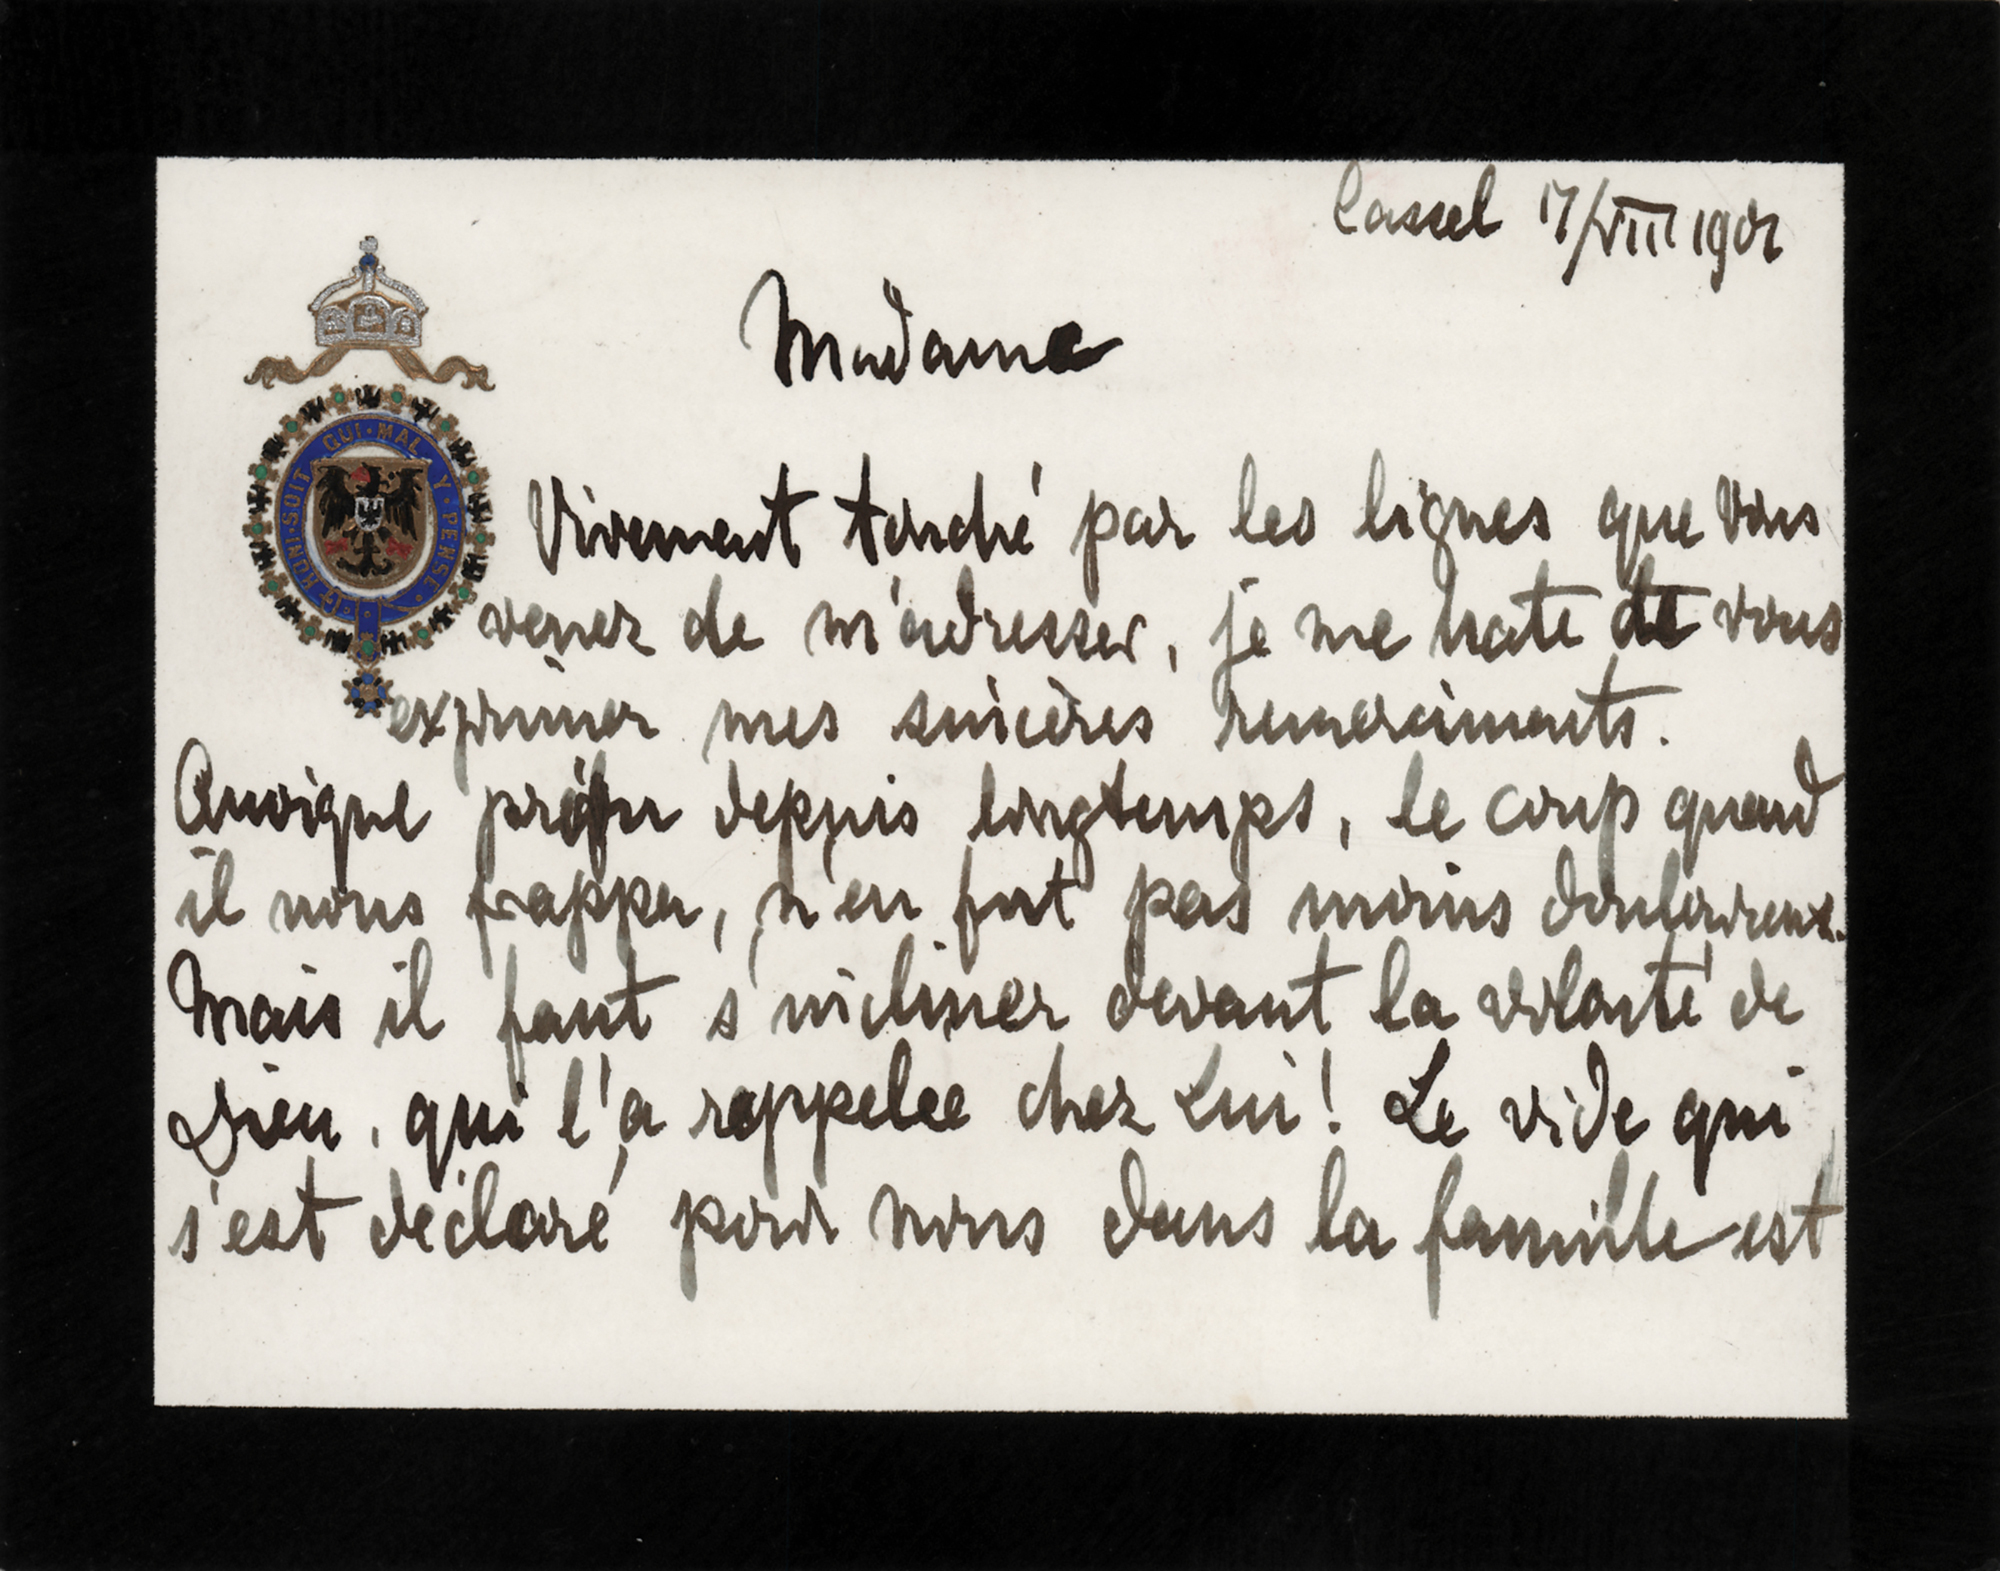 Cassel 17/VIII 1901
HONI · SOIT QUI · MAL Y · PENSE ·
Madame
Vivement touché par les lignes que Vous
venez de m'adresser, je me hate de vous
exprimer mes sincères remerciments.
Quoique prévu depuis longtemps, le coup quand
il nous frappa, n'en fut pas moins douloureux.
Mais il faut s'incliner devant la volonté de
Dieu, qui l'a rappelée chez Lui! Le vide qui
s'est déclaré pour nous dans la famille est